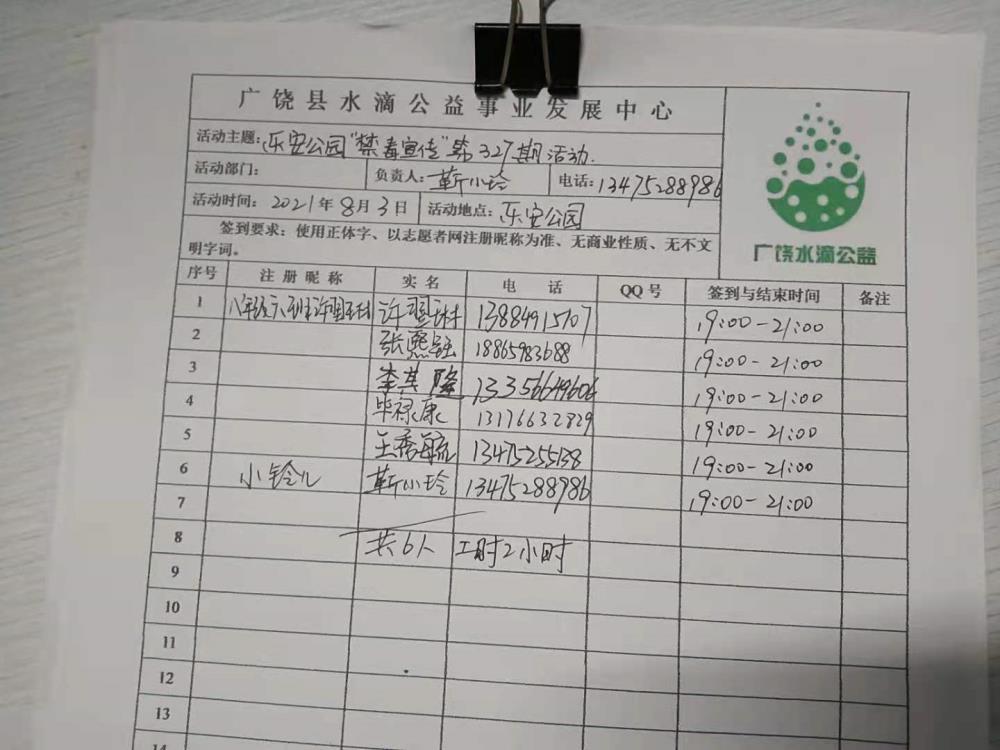 广饶县水滴公益事业发展中心
活动主题:乐安公园"禁毒宣传"第327期活动.
活动部门: 负责人:靳小玲 电话:13475288986
活动时间: 2021年8月3日 活动地点:乐安公园
签到要求:使用正体字、以志愿者网注册昵称为准、无商业性质、无不文
明字词。
广饶水滴公益
序号 注册昵称 实名 电话 QQ号 签到与结束时间 备注
1 八年级六班许翌琳 许翌琳 13884915107 19:00-21:00
2 张熙 18865983688 19:00-21:00
3 李其隆 13356649606 19:00-21:00
4 毕禄康 13176632829 19:00-21:00
5 王秀毓 13475255138 19:00-21:00
6 小铃儿 靳小玲 13475288986 19:00-21:00
7
8 共6人 工时2小时
9
10
11
12
13
14